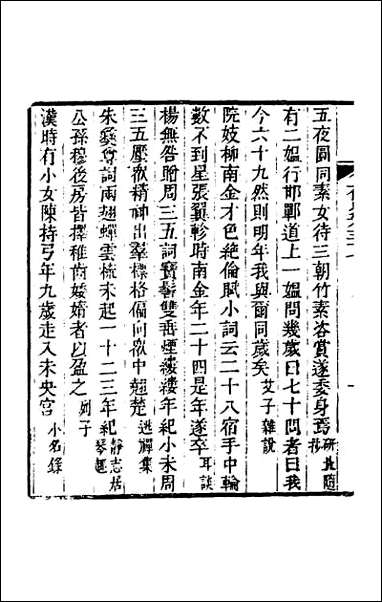 五夜圓同素女待三朝竹素咨賞遂委身焉研北隨抄
有二媼行邯鄲道上一媼問幾歲曰七十問者曰我
今六十九然則明年我與爾同歲矣艾子雜說
院妓柳南金才色絶倫賦小詞云二十八宿手中輪
數不到星張翼軫時南金年二十四是年遂卒耳談
楊無咎贈周三五詞寶髻雙垂煙縷縷年紀小未周
三五壓衆精神出羣標格偏向衆中翹楚逃禪集
朱彝尊詞兩翅蟬雲梳未起一十二三年紀靜志居琴趣
公孫穆後房皆擇稚齒婑媠者以盈之列子
漢時有小女陳持弓年九歲走入未央宮小名錄